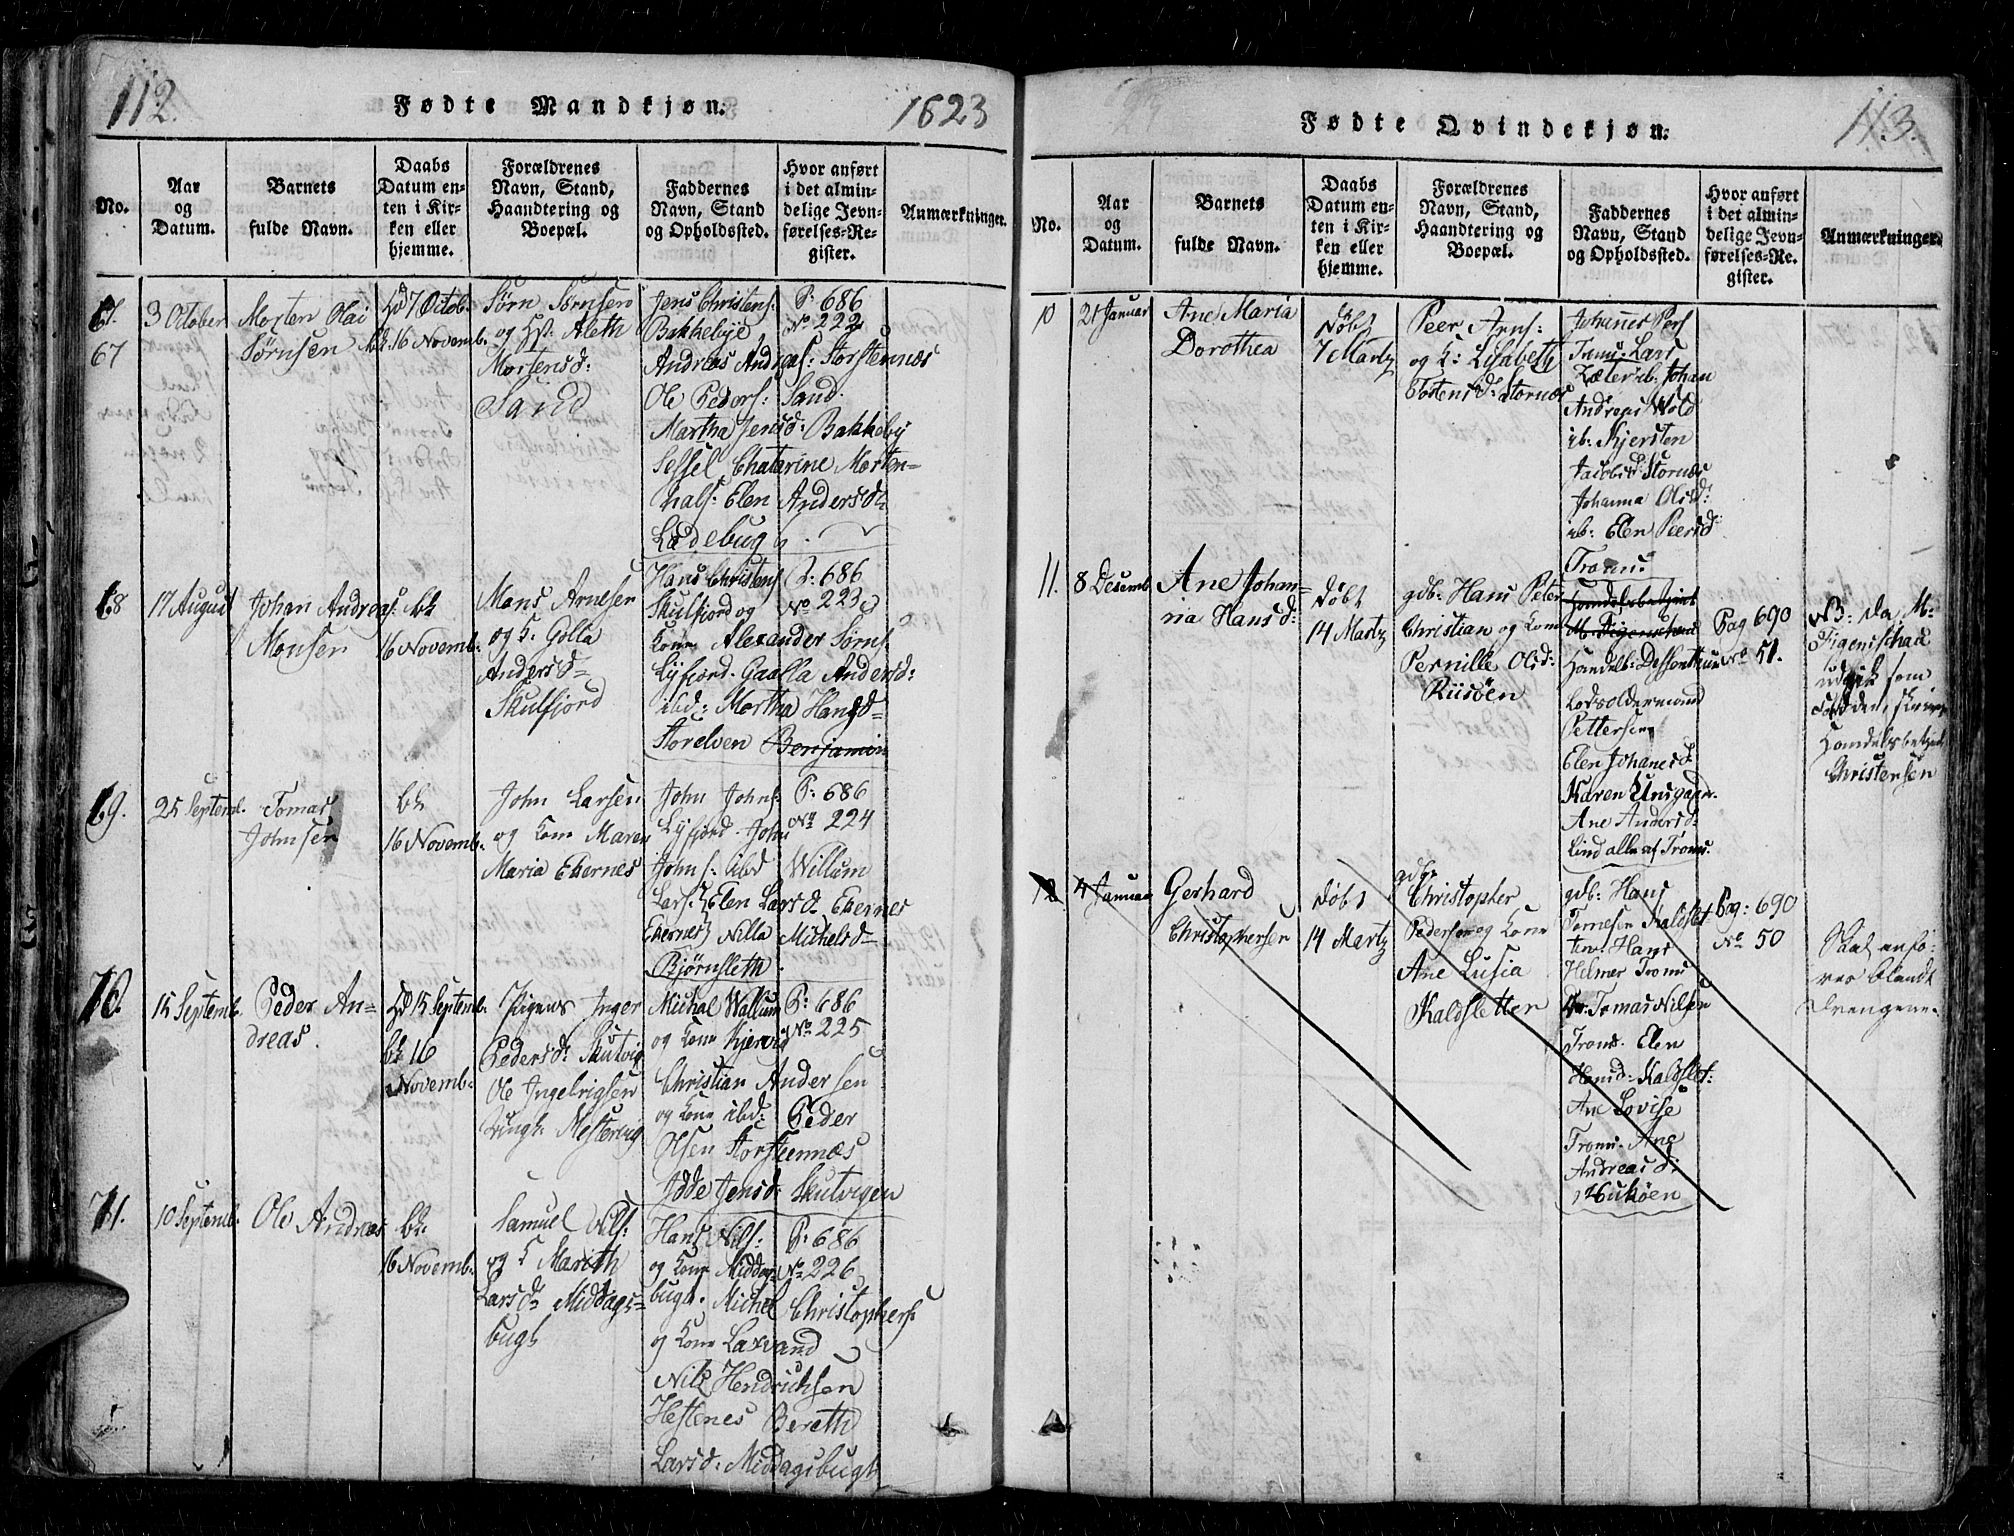 112.
Fødte Mandkjøn.
1823
No.
Aar og Datum.
Barnets fulde Navn.
Daabs Datum enten i Kirken eller hjemme.
Forældrenes Navn, Stand, Haandtering og Boepæl.
Faddernes Navn, Stand og Opholdssted.
Hvor anført i det almindelige Jevnførelses-Register.
Anmærkninger.
67
3 October
Morten Olai
Sørnsen
Hd 7 Octob.
bk. 16 Novemb.
Sørn Sørnsen
og Hst. Aleth
Mortensd:
Sand
Jens Christens:
Bakkebye
Andreas Andreas: Storstennæs
Ole Peders: Sand.
Martha Jensd: Bakkeby
Sessel Chatarine Morten-
hals: Elen Andersd=
Ladebugh.
P: 686
No 222
68
17 August
Johan Andreas:
Monsen
bk
16 Novemb.
Mons Arnesen
og K. Golla
Andersd=
Skulfjord
Hans Christens
Skulfjord og
Kone Alexander Sørns.
Lyfjord. Gaalla Andersd:
ibd: Martha Hansd=
Storelven Benjamin
P: 686
No 223
69.
25 Septemb.
Tomas
Johnsen
bk
16 Novemb.
John Larsen
og Kone Maren
Maria Ekernes
John Johns:
Lyfjord. John
Johns: ibd Willum
Lars: Elen Larsd= Ekernes
Ekernes Nilla Michelsd=
Bjørnsleth.
P: 686
No 224
70.
15 Septemb.
Peder An=
dreas.
Hd 15 Septemb.
bk 16
Novemb.
Pigens Inger
Pedersd: Skutvig
Ole Ingelrigsen
Ungk: Mestervig
Michal Wallum
og Kone Kjervig
Christian Andersen
og Kone ibd: Peder
Olsen Storsteennæs
Idde Jensd: Skutvigen
P: 686
No 225
71.
10 Septemb.
Ole Andreas
bk.
16 Novemb.
Samuel Nils:
og K Marith
Larsd= Middags=
bugh
Hans Nils:
og Kone Middags
bugh. Michel Christophers:
og Kone Laxvand
Nils Hendrichsen
Hestenes Bereth
Larsd. Middagsbugh
P: 686
No 226
113.
Fødte Qvindekjøn.
No.
Aar og Datum.
Barnets fulde Navn.
Daabs Datum enten i Kirken eller hjemme.
Forældrenes Navn, Stand, Haandtering og Boepæl.
Faddernes Navn, Stand og Opholdssted.
Hvor anført i det almindelige Jevnførelses-Register.
Anmærkninger.
10
21 Januar
Ane Maria
Dorothea
Døbt
7 Martz
Peer Arns:
og K: Lisabeth
Tostensd: Stornæs
Johannes Pers
Troms: Lars
ib: Johan
Andreas Wold
ib: Kjersten
Jacobsd: Stornæs
Johanna Olsd:
ib: Elen Peersd:
Troms.
11.
8 Desemb
Ane Johan=
na Hansd:
Døbt
14 Martz
gdb: Hans Peter
Christian og Kone
Pernille Olsd:
Riisøen
Handelsbetjent
M. Figenschau
Handelsb: Dessonthun
Lodsoldermand
Pettersen
Elen Johanesd
Karen Unsgaar.
Ane Andersd=
Lind alle af Troms.
Pag 690
No 51.
NB: da M:
Figenschau
udgik som
Fadder, skriver
Handelsbetjent
Christensen
12.
4 Januar
Gerhard
Christophersen
Døbt
14 Martz
gdb.
Christopher
Pedersen og Kone
Ane Lusia
Kaldsletten
gdb: Hans
Tomesen Kaldslet
ten Hans
Helmer Troms
Tomas Nilsen
Troms. Elen
Hansd= Kaldslet:
Ane Lovise
Troms. Ane
Andreasd:
Hukøen
Pag: 690
No 50
Skal anfø-
res blandt
Drengene.